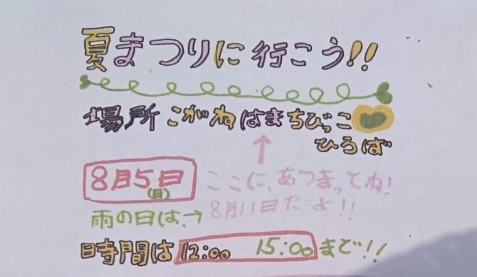 夏まつりに行こう!!
場所 こがねはまちびっこ
ひろば
8月5日
(日)
ここに、あつまってね!
雨の日は→
8月11日だよ!!
時間は 12:00 15:00まで!!